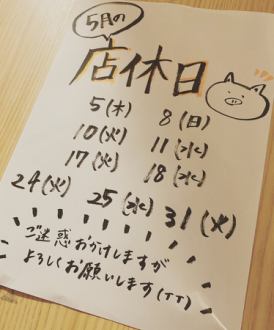 5月の
店休日
5(木) 8(日)
10(火) 11(水)
17(火) 18(水)
24(火) 25(水) 31(火)
ご迷惑おかけしますが
よろしくお願いします(TT)